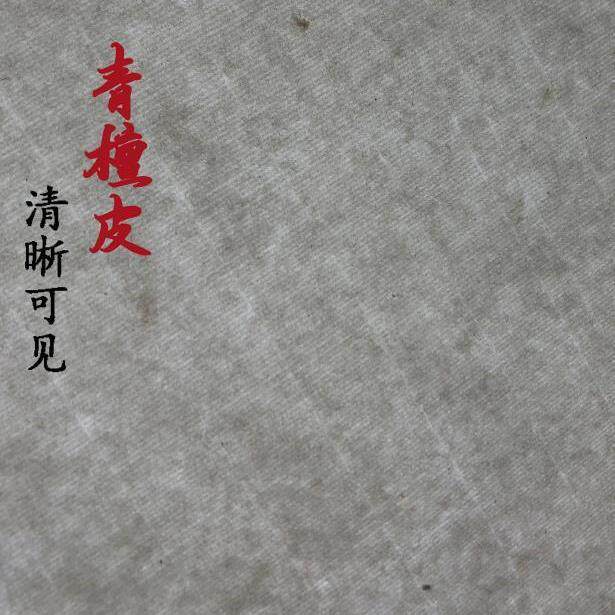 青檀皮
清晰可见